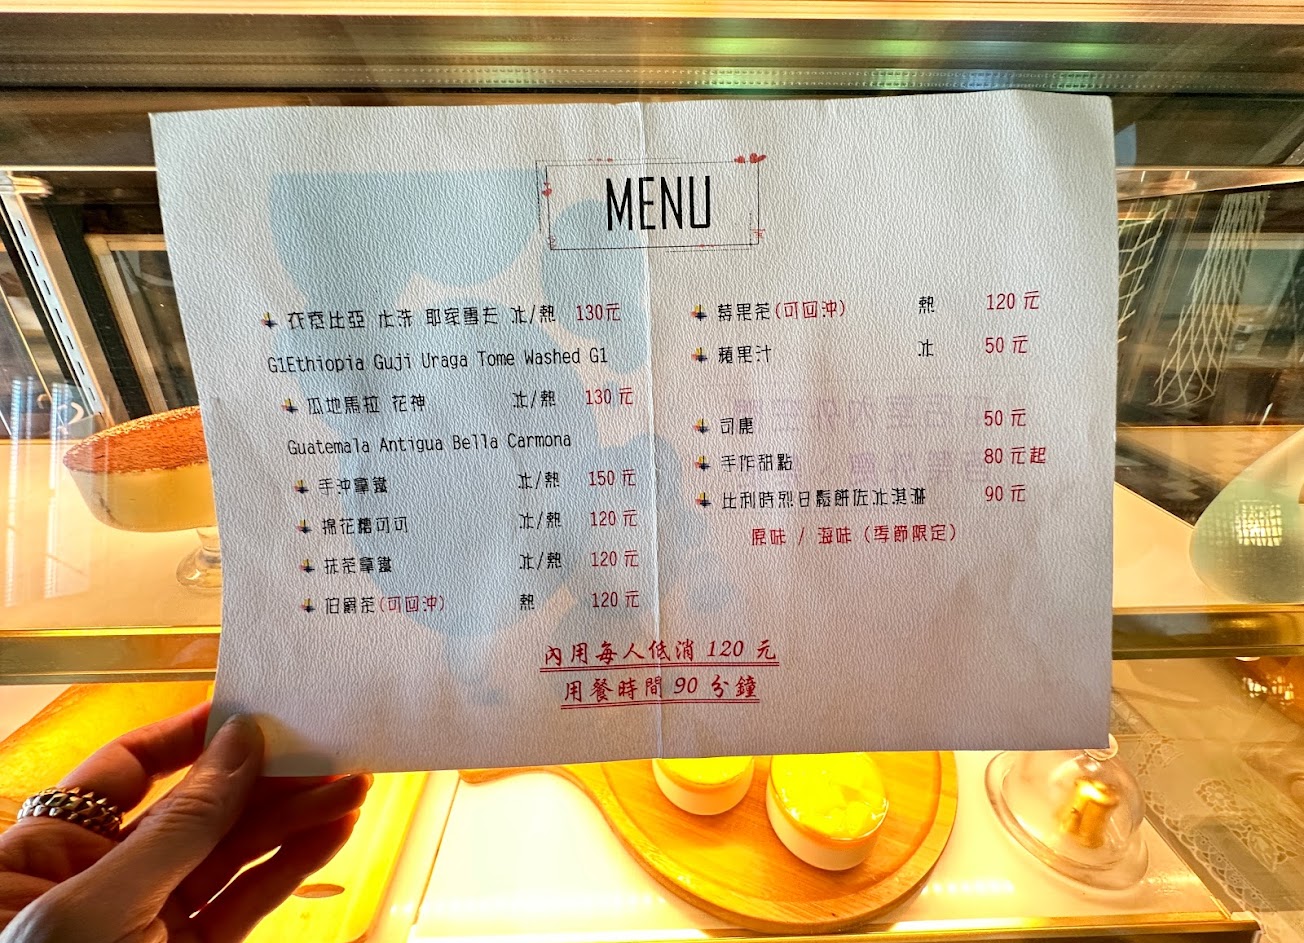 MENU
衣索比亞 水洗 耶家雪夫 冰/熱 130元
G1Ethiopia Guji Uraga Tome Washed G1
瓜地馬拉 花神 冰/熱 130 元
Guatemala Antigua Bella Carmona
手沖拿鐵 冰/熱 150 元
棉花糖可可 冰/熱 120 元
抹茶拿鐵 冰/熱 120 元
伯爵茶(可回沖) 熱 120 元
蘋果茶(可回沖) 熱 120 元
蘋果汁 冰 50 元
司康 50 元
手作甜點 80 元起
比利時烈日鬆餅佐冰淇淋 90 元
原味 / 海味 (季節限定)
內用每人低消 120 元
用餐時間 90 分鐘